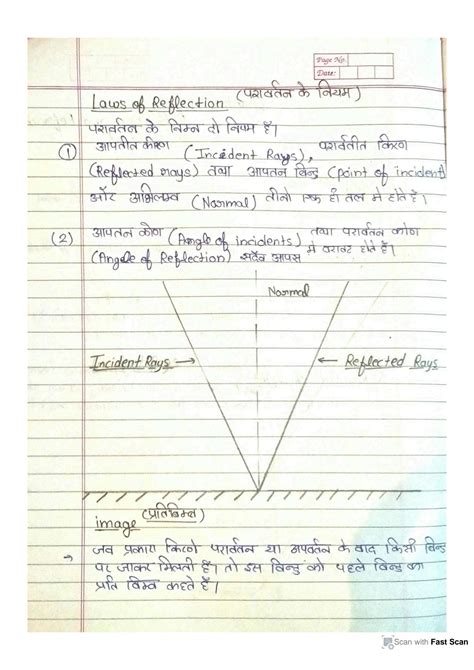 Page No.
Date:
Laws of Reflection (परावर्तन के नियम)
परावर्तन के निम्न दो नियम हैं।
(1) आपतीत कीरण (Incident Rays), परावर्तीत किरण
(Reflected rays) तथा आपतन बिन्दु (point of incident)
और अभिलम्ब (Normal) तीनो एक ही तल मे होते हैं।
(2) आपतन कोण (Angle of incidents) तथा परावर्तन कोण
(Angle of Reflection) सदैव आपस मे बराबर होते हैं।
Normal
Incident Rays → ← Reflected Rays
image (प्रतिबिम्ब)
→ जब प्रकाश किरणे परावर्तन या अपवर्तन के बाद किसी बिन्दु
पर जाकर मिलती हैं। तो इस बिन्दु को पहले बिन्दु का
प्रति बिम्ब कहते हैं।
Scan with Fast Scan